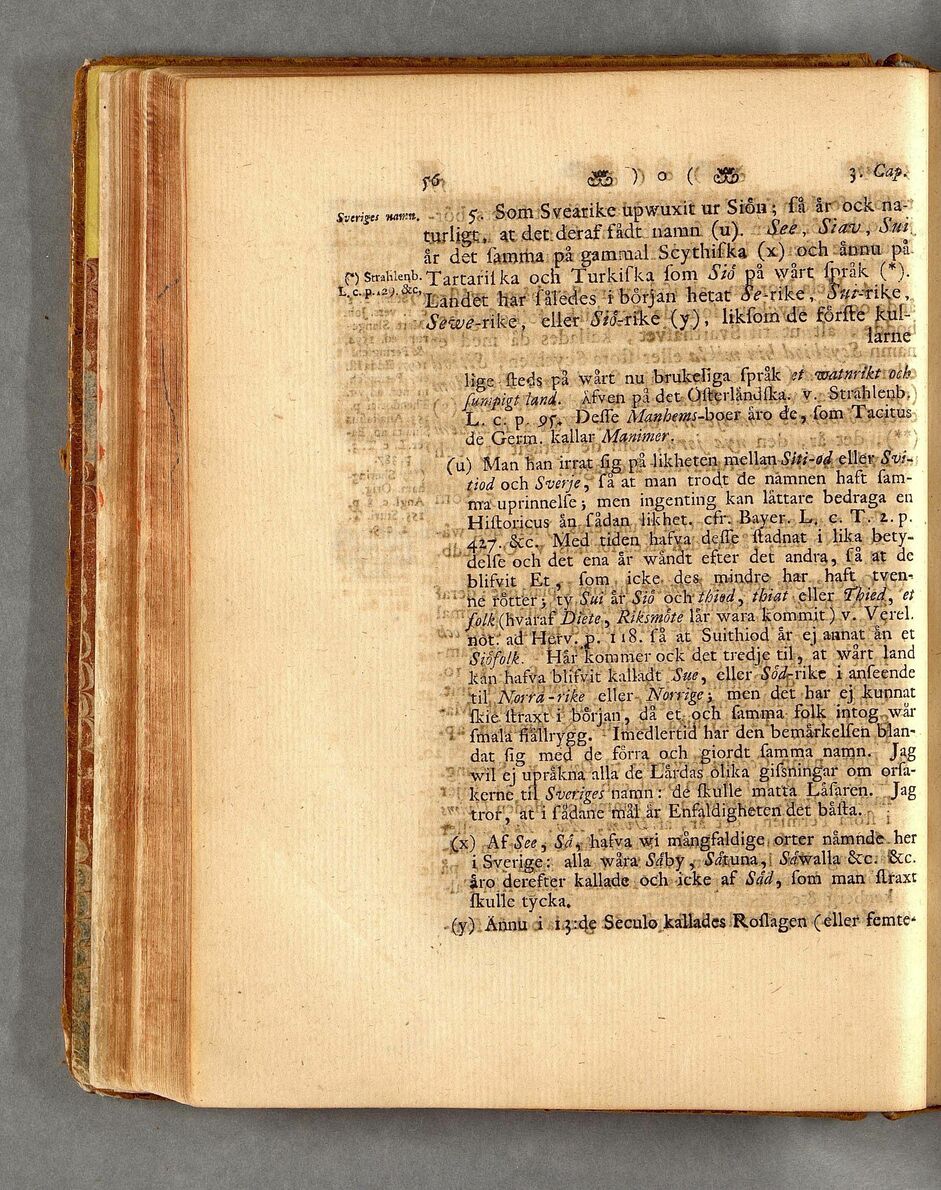 56 ) o ( 3. Cap.
Sveriges namn.
5. Som Svearike upwuxit ur Siön; ſå år ock na-
turligt, at det deraf fådt namn (u). See, Siav, Sui
år det ſamma på gammal Scythiſka (x) och ånnu på
(*) Strahlenb.
L. c. p. 129. &c.
Tartariſka och Turkiſka ſom Siö på wårt ſpråk (*).
Landet har ſåledes i början hetat Se-rike, Sui-rike,
Sewe-rike, eller Siö-rike (y), likſom de förſte kul-
larne
lige ſteds på wårt nu brukeliga ſpråk et watnrikt och
ſumpigt land. Åfven på det Öſterlåndſka. v. Strahlenb.
L. c. p. 95. Deſſe Manhems-boer åro de, ſom Tacitus
de Germ. kallar Manimer.
(u) Man han irrat ſig på likheten mellan Siti-od eller Svi-
tiod och Sverje, ſå at man trodt de namnen haft ſam-
ma uprinnelſe; men ingenting kan låttare bedraga en
Hiſtoricus ån ſådan likhet. cfr. Bayer. L. c. T. 2. p.
427. &c. Med tiden hafva deſſe ſtadnat i lika bety-
delſe och det ena år wåndt efter det andra, ſå at de
blifvit Et, ſom icke des mindre har haft tven-
ne rötter; ty Sui år Siö och thiod, thiat eller Thied, et
folk (hvaraf Diete, Riksmöte lår wara kommit) v. Verel.
not. ad Herv. p. 118. ſå at Suithiod år ej annat ån et
Siöfolk. Hår kommer ock det tredje til, at wårt land
kan hafva blifvit kalladt Sue, eller Söd-rike i anſeende
til Norra-rike eller Norrige; men det har ej kunnat
ſkie ſtraxt i början, då et och ſamma folk intog wår
ſmala fiållrygg. Imedlertid har den bemårkelſen blan-
dat ſig med de förra och giordt ſamma namn. Jag
wil ej upråkna alla de Lårdas olika giſsningar om orſa-
kerne til Sveriges namn: de ſkulle matta Låſaren. Jag
trof, at i ſådane mål år Enfaldigheten det båſta.
(x) Af See, Så, hafva wi mångfaldige orter nåmnde her
i Sverige: alla wåra Såby, Såtuna, Såwalla &c. &c.
åro derefter kallade och icke af Såd, ſom man ſtraxt
ſkulle tycka.
(y) Ånnu i 13:de Seculo kallades Roſlagen (eller femte-